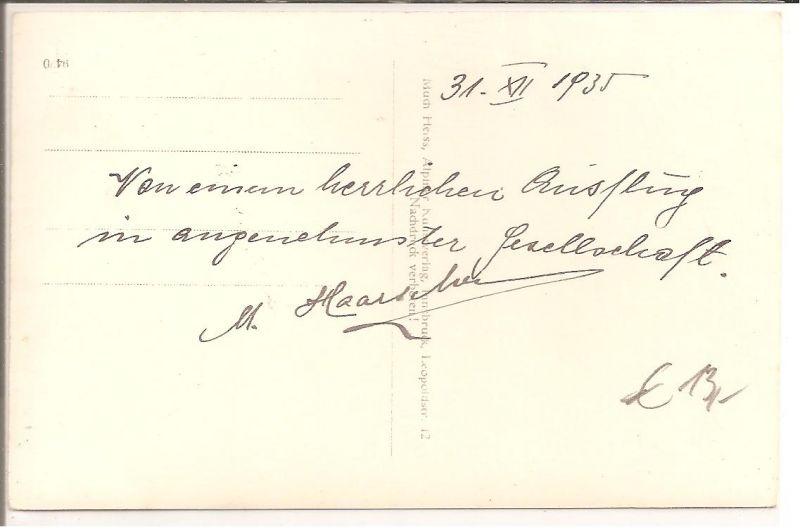 31. XII 1935
Von einem herrlichen Ausflug
in angenehmster Gesellschaft.
M.
Much Heiss, Alpiner Kunstverlag, Innsbruck, Leopoldstr. 42
Nachdruck verboten!